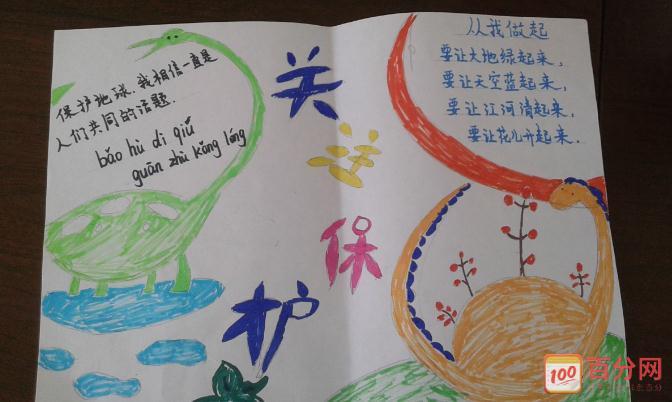 保护地球,我相信一直是
人们共同的话题.
bǎo hù dì qiú
guān zhù kǒng lóng
关
注
保
护
从我做起
要让大地绿起来,
要让天空蓝起来,
要让江河清起来,
要让花儿开起来.
100
百分网